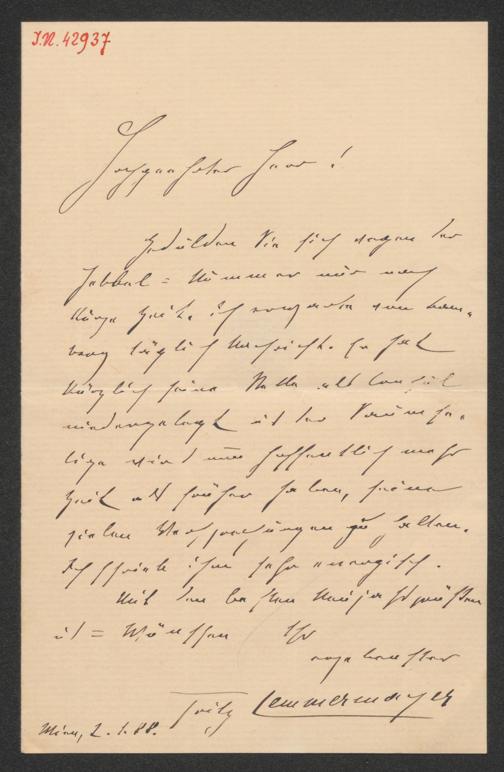 I.N. 42937
Hochgeehrter Herr!
Gedulden Sie sich wegen der
Hebbel=Nummer nur noch
kurze Zeit. Ich erwarte von Bam-
berg täglich Nachricht. Er hat
kürzlich seine Stelle als Consul
niedergelegt und der Säumse-
lige wird nun hoffentlich mehr
Zeit als früher haben, seine
vielen Versprechungen zu halten.
Ich schrieb ihm sehr energisch.
Mit den besten Neujahrsgrüßen
und =Wünschen Ihr
ergebenster
Fritz Lemmermayer
Wien, 2. 1. 88.